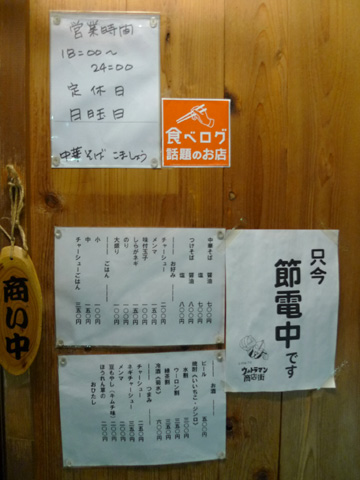 営業時間
18:00〜
24:00
定休日
日曜日
中華そば こましょう
食べログ
話題のお店
商い中
中華そば 醤油 七〇〇
塩 七〇〇
つけそば 醤油 八〇〇
塩 八〇〇
お好み
チャーシュー 二〇〇
メンマ 一五〇
味付玉子 一〇〇
しらがネギ 一〇〇
のり 一〇〇
大盛り 一〇〇
ごはん
小 一〇〇
中 一五〇
チャーシューごはん 三五〇
只今
節電中です
ウルトラマン
商店街
お酒
ビール 五〇〇
焼酎(いいちこ・ジンロ)
水割 三〇〇
ウーロン割 三五〇
緑茶割 三五〇
冷酒 六〇〇
つまみ
チャーシュー 二五〇
ネギチャーシュー 三五〇
メンマ 二〇〇
豆もやし(キムチ味) 一〇〇
ほうれん草の
おひたし